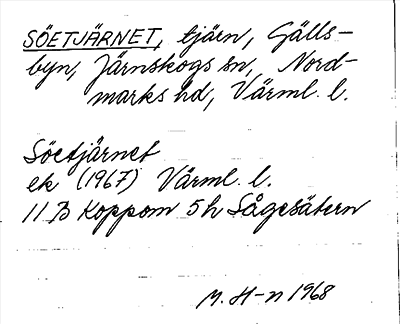 SÖETJÄRNET, tjärn, Gälls-
byn, Järnskogs sn, Nord-
marks hd, Värml. l.
Söetjärnet
ek (1967) Värml. l.
11 B Koppom 5h Sågesätern
M. H-n 1968